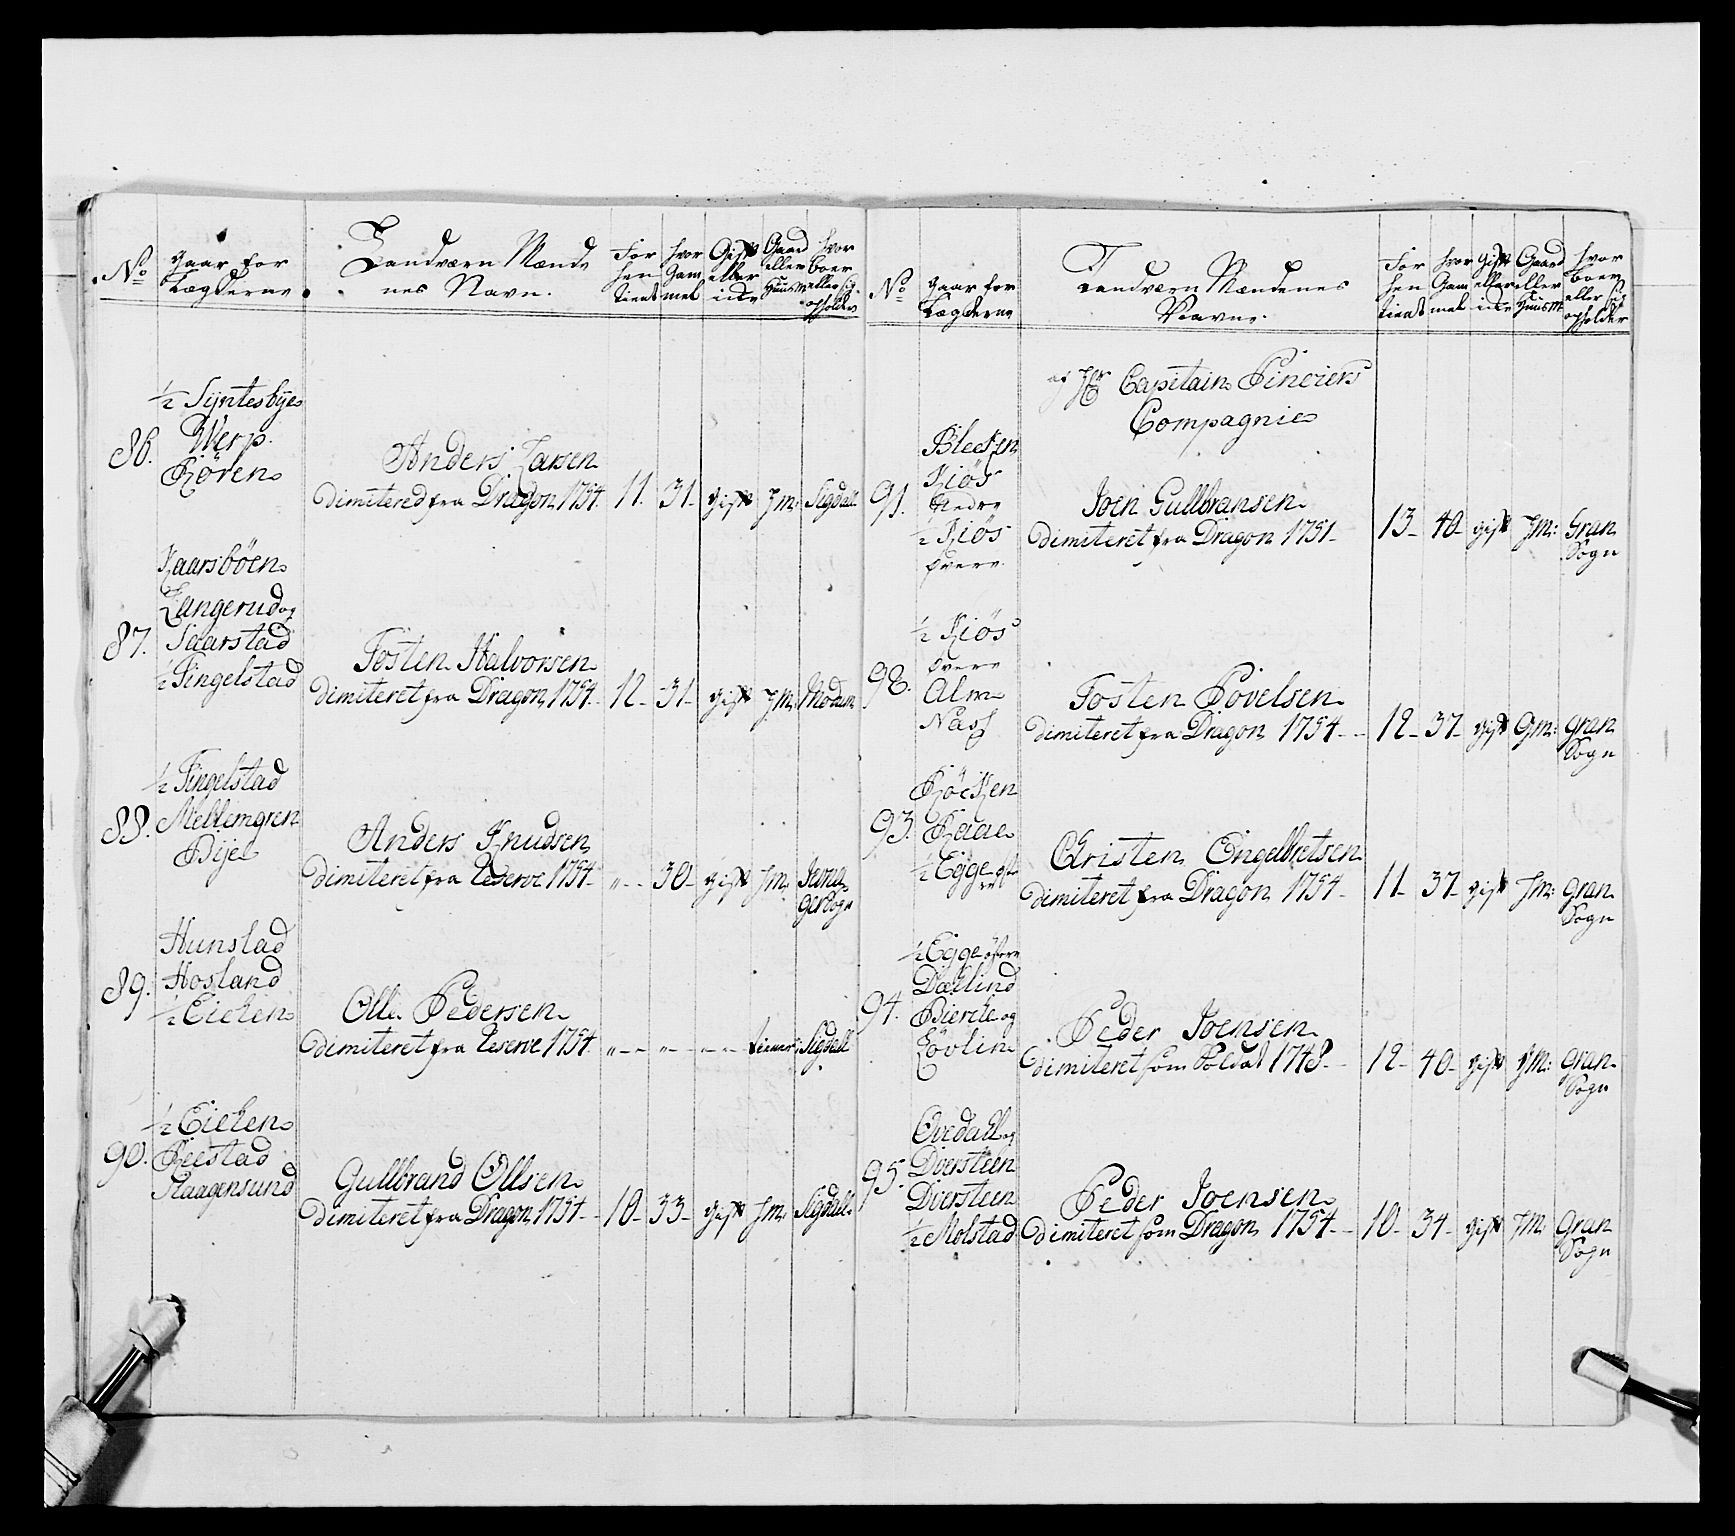 No
Gaar for
Lægderne
Landværn Mænde
nes Navn.
For
hen
tient
hvor
Gam
mel
Gift
eller
icke
Gaard
eller
Huusm
hvor
boer
eller sig
opholder
½ Sÿntesbÿe
86. Werp
Røren
Anders Larsen
dimitered fra Dragon 1754. 11. 31. gift Jm: Sigdall
Kaarsböen
Langerud og
87. Saarstad
½ Tingelstad
Tosten Halvorsen
dimiteret fra Dragon 1754. 12 - 31 - gift Jm: Modum
½ Tingelstad
88. Mellemgren
Bÿe
Anders Knudsen
dimiteret fra Reserve 1754 - „ - - 30 - gift Jm:
Hunstad
89. Hosland
½ Eieken
Olle Pedersen
dimiteret fra Reserve 1754. „ - - „ - - - - tiener Sigdall
½ Eieken
90. Beestad
Haagensund
Gullbrand Ollsen
dimiteret fra Dragon 1754 - 10 - 33 - gift Jm: Sigdall
No
Gaar for
Lægderne
Landværn Mændenes
Navne.
For
hen
tient
hvor
Gam
mel
Gift
eller
icke
Gaard
eller
Huusm
hvor
boer
eller sig
opholder
af Hr Capitain Sinciers
Compagnie
Blecken
Kiös
91. Nedre
½ Kiös
öfvere
Joen Gullbransen
dimiteret fra Dragon 1751 - 13 - 40 - gift Jm: Gran
Sogn
½ Kiös
övere
92. Alm
Nass
Tosten Povelsen
dimiteret fra Dragon 1754 - - 12 - 37 - gift Gm: Gran
Sogn
Röcken
93. Raae
½ Egge
Christen Engelbretsen
dimiteret fra Dragon 1754 - 11 - 37 - gift Jm: Gran
Sogn
½ Egge östere
Dællind
94. Biercke og
Lövlin
Peder Joensen
dimiteret som Soldat 1748 - 12 - 40 - gift Jm: Gran
Sogn
Ovedall og
95. Dversteen
Dversteen
½ Molstad
Peder Joensen
dimiteret som Dragon 1754 - - 10 - 34 - gift Jm: Gran
Sogn